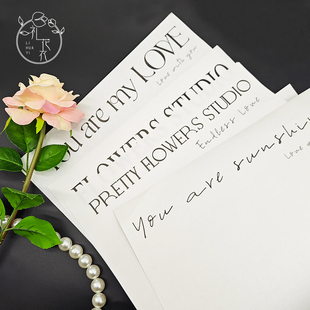 LI
HUA
YI
You are my LOVE
Love with you
FLOWERS STUDIO
PRETTY FLOWERS STUDIO
Endless Love
You are sunshin
Love